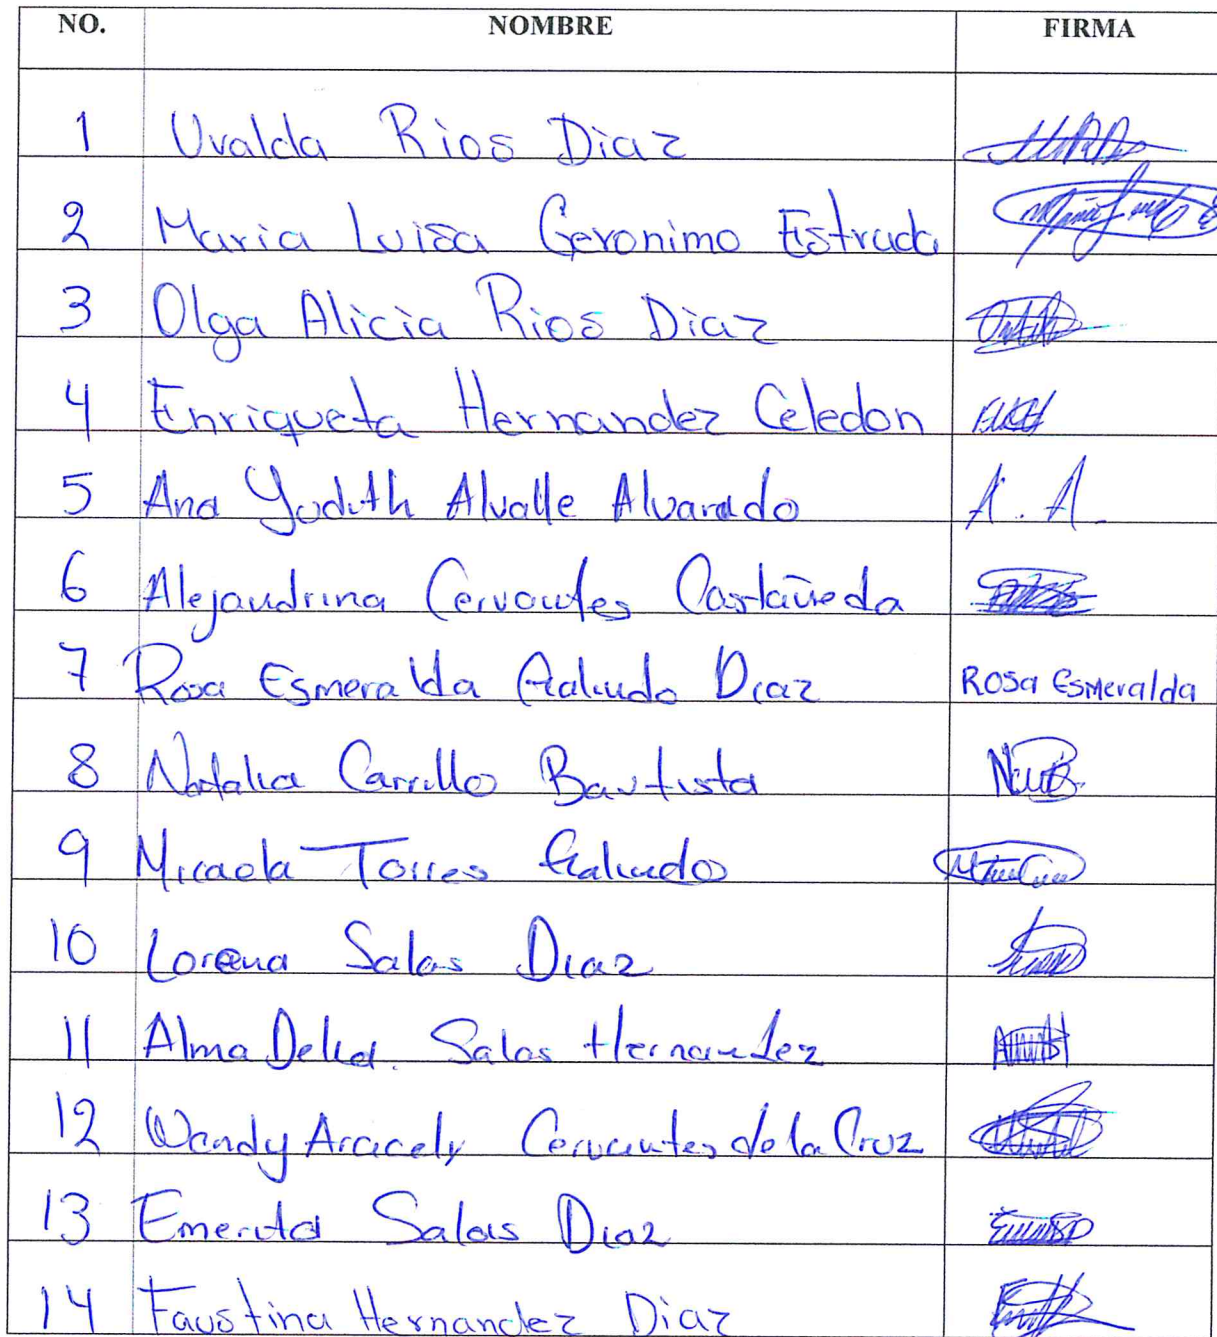 NO. NOMBRE FIRMA
1 Uvalda Rios Diaz
2 Maria Luisa Geronimo Estrada
3 Olga Alicia Rios Diaz
4 Enriqueta Hernandez Celedon
5 Ana Yudith Alvalle Alvarado A. A.
6 Alejandrina Cervantes Castañeda
7 Rosa Esmeralda Galindo Diaz ROSA Esmeralda
8 Natalia Carrillo Bautista
9 Micaela Torres Galindo
10 Lorena Salas Diaz
11 Alma Delia. Salas Hernandez
12 Wendy Aracely Cervantes de la Cruz
13 Emerita Salas Diaz
14 Faustina Hernandez Diaz